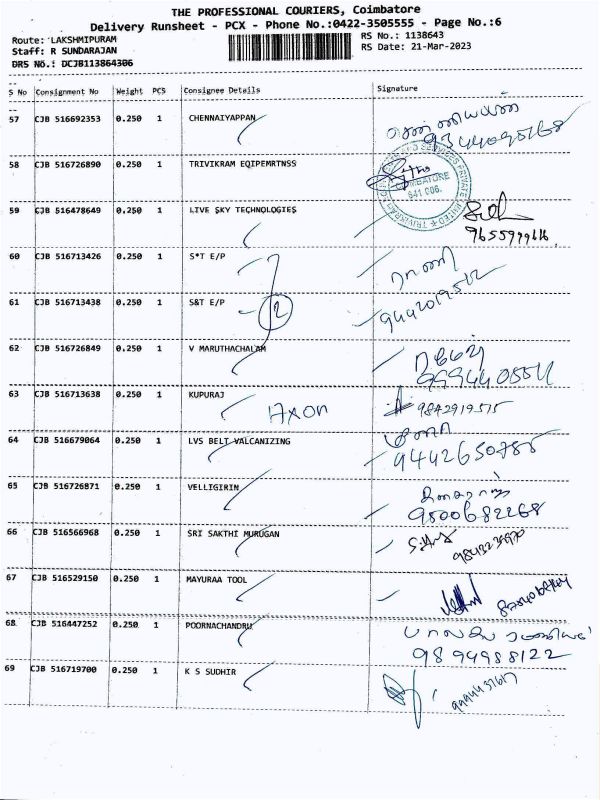 THE PROFESSIONAL COURIERS, Coimbatore
Delivery Runsheet - PCX - Phone No.:0422-3505555 - Page No.:6
Route: LAKSHMIPURAM RS No.: 1138643
Staff: R SUNDARAJAN RS Date: 21-Mar-2023
DRS No.: DCJB113864306
S No Consignment No Weight PCS Consignee Details Signature
57 CJB 516692353 0.250 1 CHENNAIYAPPAN
58 CJB 516726890 0.250 1 TRIVIKRAM EQIPEMRTNSS
COIMBATORE
641 006.
59 CJB 516478649 0.250 1 LIVE SKY TECHNOLOGIES
60 CJB 516713426 0.250 1 S*T E/P
ராணி
61 CJB 516713438 0.250 1 S&T E/P 2
9442019512
62 CJB 516726849 0.250 1 V MARUTHACHALAM
63 CJB 516713638 0.250 1 KUPURAJ
Axon 9842919515
64 CJB 516679064 0.250 1 LVS BELT VALCANIZING
9442650785
65 CJB 516726871 0.250 1 VELLIGIRIN
9500682268
66 CJB 516566968 0.250 1 SRI SAKTHI MURUGAN
67 CJB 516529150 0.250 1 MAYURAA TOOL
68 CJB 516447252 0.250 1 POORNACHANDRU
9894988122
69 CJB 516719700 0.250 1 K S SUDHIR